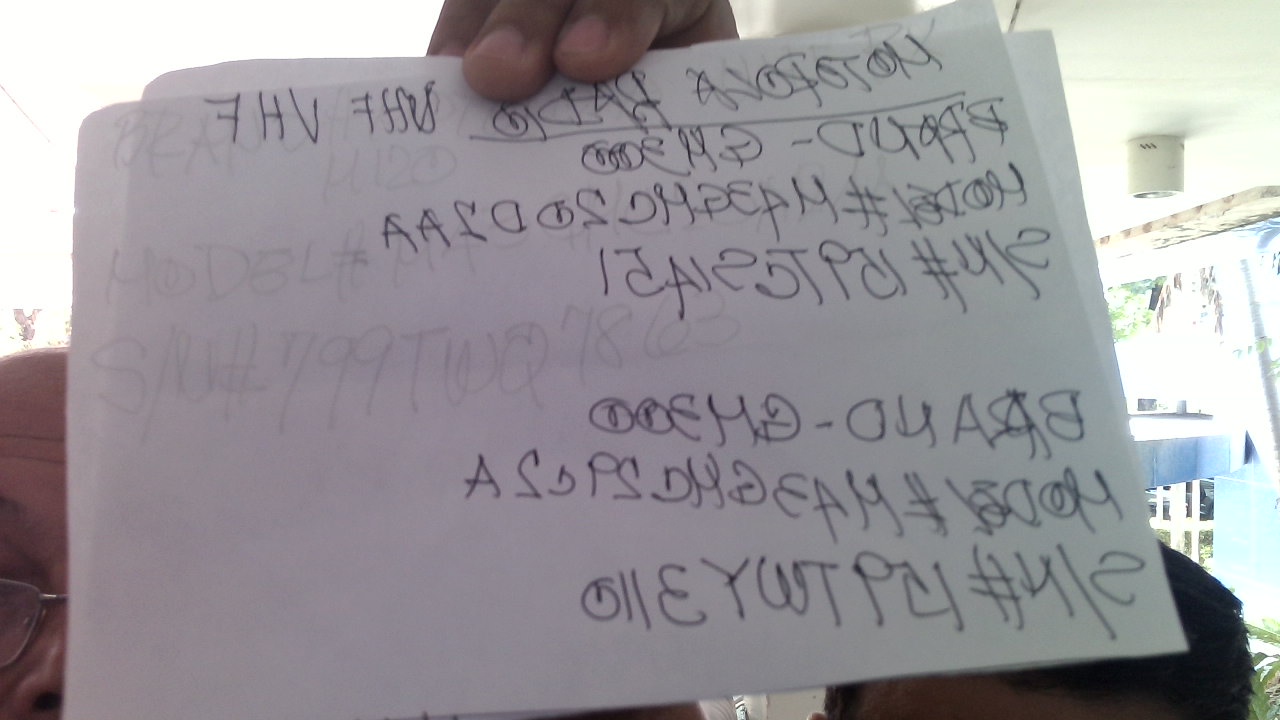 MOTOROLA RADIO UHF VHF
BRAND - GM300
MODEL# M43GMC20D2AA
S/N# 159TCS1A51
BRAND - GM300
MODEL# M43GMC29C2A
S/N# 159TWY3110
M120
MODEL#
S/N#799TWQ7863